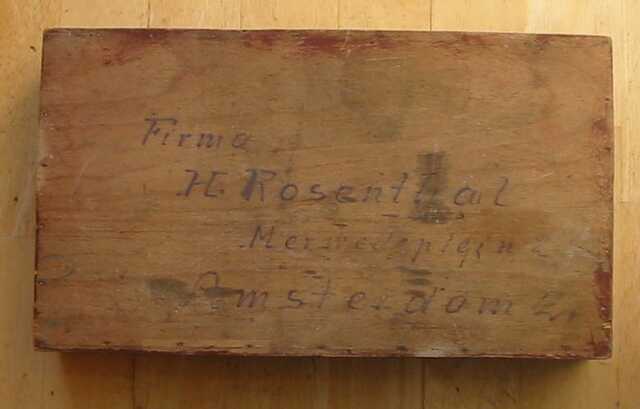 Firma
H. Rosenthal
Merwedeplein
Amsterdam Z.